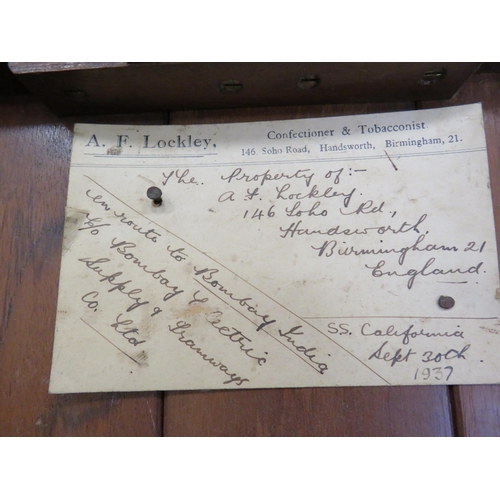 A. F. Lockley,
Confectioner & Tobacconist
146 Soho Road, Handsworth, Birmingham, 21.
The Property of:-
A F Lockley.
146 Soho Rd,
Handsworth
Birmingham 21
England.
en route to Bombay India
c/o Bombay Electric
Supply & Tramways
Co. Ltd
SS. California
Sept 30th
1937